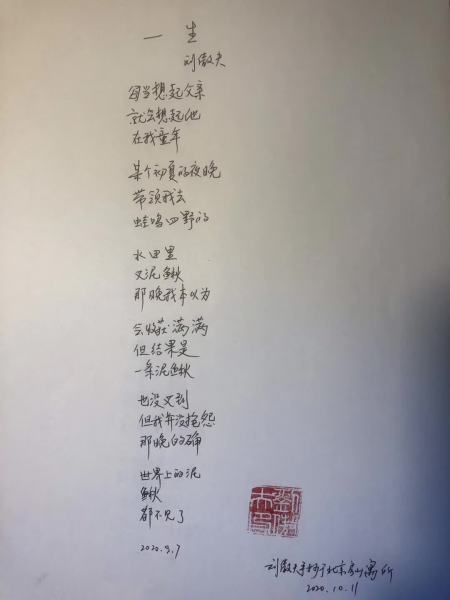 一生
刘傲夫
每当想起父亲
就会想起他
在我童年
某个初夏的夜晚
带领我去
蛙鸣四野的
水田里
叉泥鳅
那晚我本以为
会收获满满
但结果是
一条泥鳅
也没叉到
但我并没抱怨
那晚的确
世界上的泥
鳅
都不见了
2020.9.7
刘傲夫手抄于北京房山寓所
2020.10.11